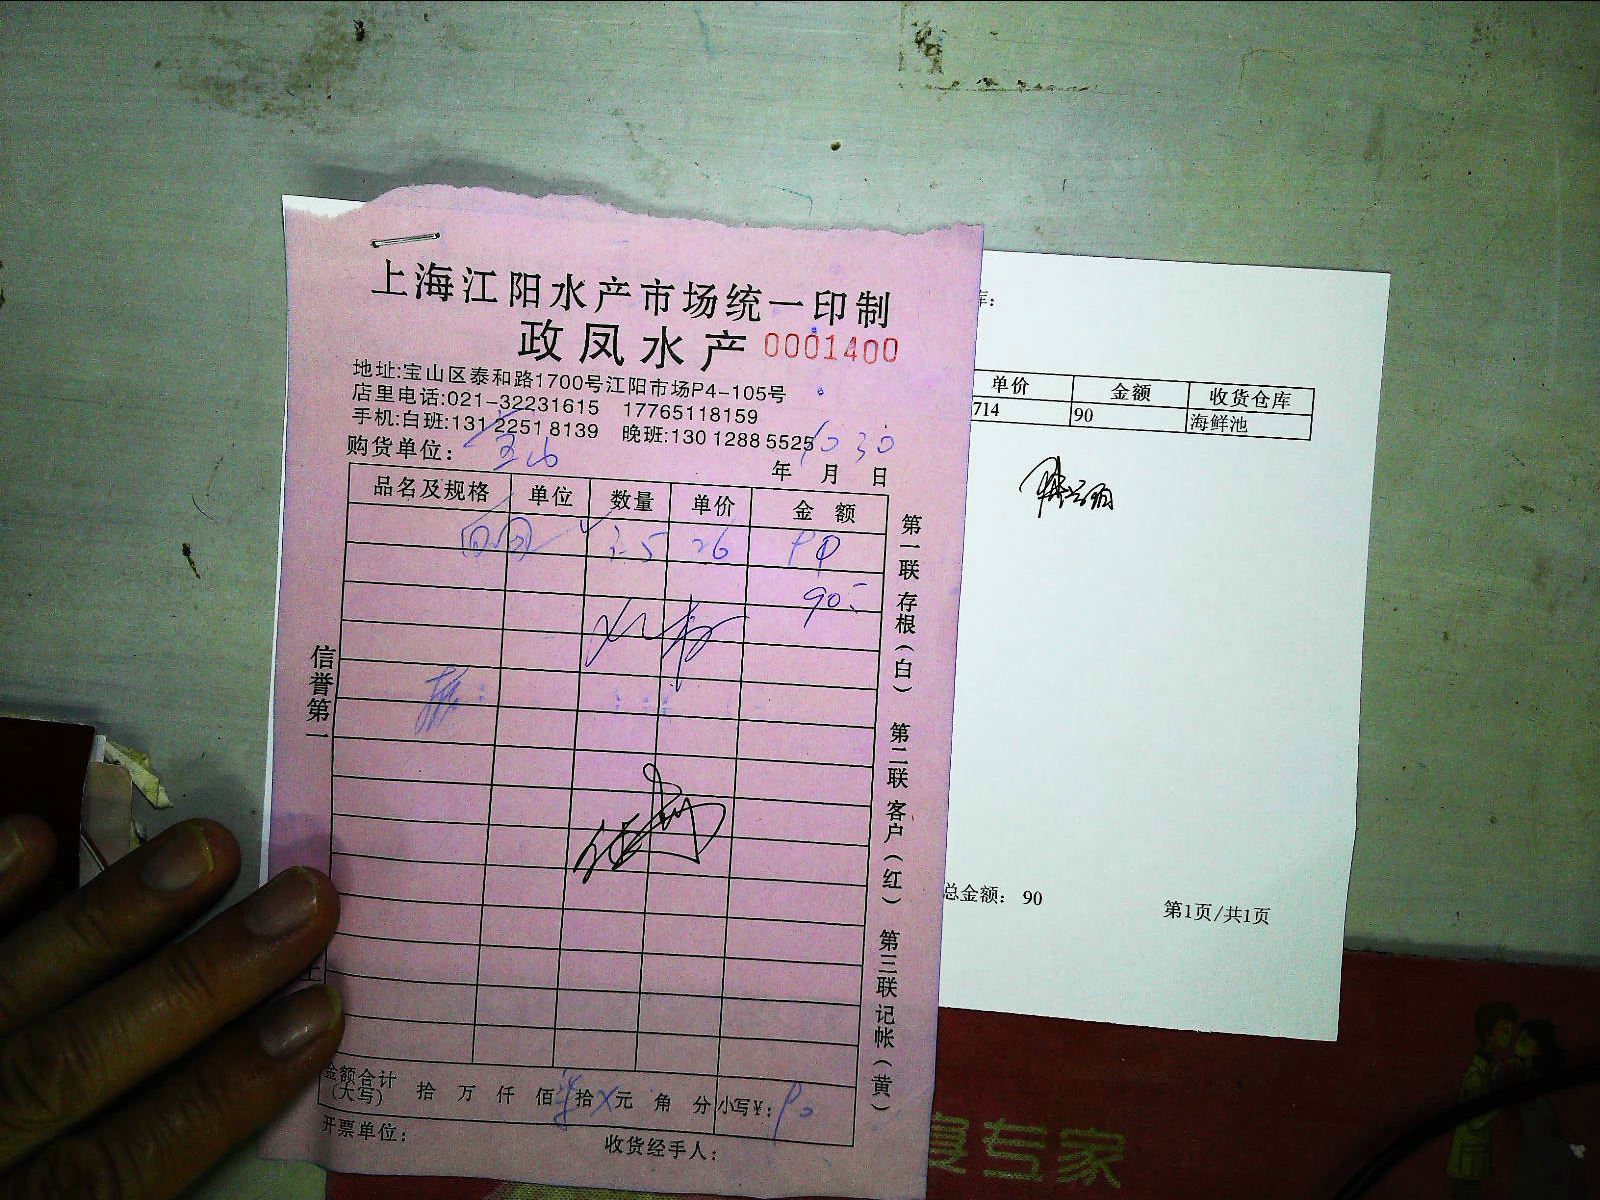 上海江阳水产市场统一印制
政凤水产 0001400
地址:宝山区泰和路1700号江阳市场P4-105号
店里电话:021-32231615 17765118159
手机:白班:131 2251 8139 晚班:130 1288 5525
购货单位: 10 30
年 月 日
品名及规格 单位 数量 单价 金额
3.5 26 90
90
信誉第一
第一联 存根(白) 第二联 客户(红) 第三联 记帐(黄)
金额合计(大写) 拾 万 仟 佰 拾 元 角 分 小写¥: 90
开票单位: 收货经手人:
库:
单价 金额 收货仓库
714 90 海鲜池
总金额: 90 第1页/共1页
专家